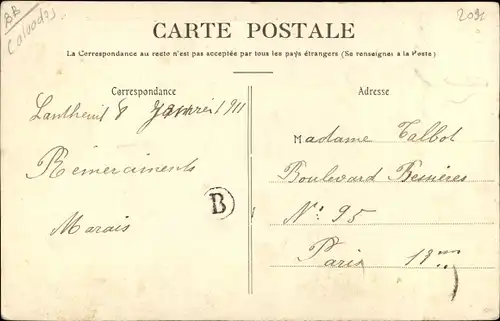 BB
Calvados
2091
CARTE POSTALE
La Correspondance au recto n'est pas acceptée par tous les pays étrangers (Se renseigner à la Poste)
Correspondance
Lantheuil 8 Janvier 1911
Rémerciments
Marais
B
Adresse
Madame Talbot
Boulevard Bessières
No: 95
Paris 18me